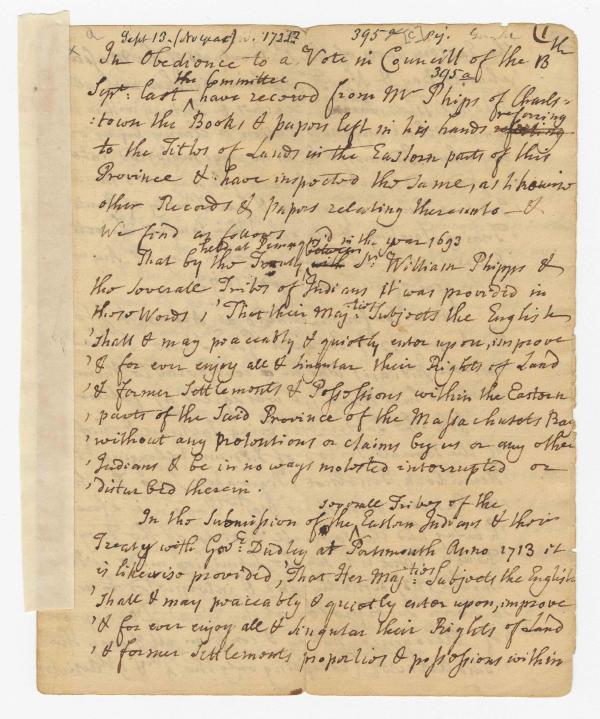 a Sept 13. (No year) 395a (c) Pej. (1
In Obedience to a Vote in Councill of the 13th
Sept: last the Committee have received from Mr Phips of Charls=
395a
:town the Books & papers left in his hands referring
to the Titles of Lands in the Eastern parts of this
Province & have inspected the same, as likewise
other Records & papers relating thereunto — &
We find as follows
That by the Treaty held at Pemaq'd in the year 1693
between Sr. William Phipps &
the severall Tribes of Indians it was provided in
these Words, 'That their Maj:ties Subjects the English
'shall & may peaceably & quietly enter upon, improve
'& for ever enjoy all & singular their Rights of Land
'& former Settlements & Possessions within the Eastern
'parts of the Said Province of the Massachusets Bay
'without any pretentions or claims by us or any other
'Indians & be in no ways molested interrupted or
'disturbed therein.
In the Submission of the severall Tribes of the Eastern Indians & their
Treaty with Govr. Dudley at Portsmouth Anno 1713 it
is likewise provided, 'That Her Maj:ties Subjects the English
'shall & may peaceably & quietly enter upon, improve
'& for ever enjoy all & Singular their Rights of Land
'& former Settlements properties & possessions within